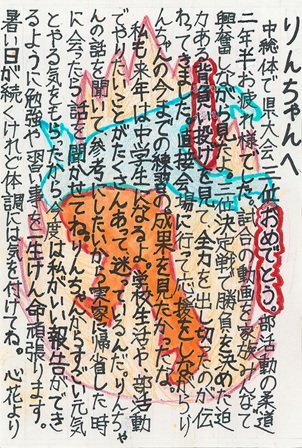 りんちゃんへ
中総体で県大会三位おめでとう。部活動の柔道
二年半お疲れ様でした。試合の動画を家族みんなで
興奮しながら見た。三位決定戦で勝負を決めた迫
力ある背負い投げを見て、全力を出し切ったのが伝
わってきました。直接会場に行って応援をしながらり
んちゃんの今までの練習の成果を見たかったな。
私も来年は中学生になるよ。学校生活や、部活動
でやりたいことがたくさんあって迷っているんだ。りんちゃ
んの話を聞いて参考にしたいから実家に帰省した時
に会ったら話を聞かせてね。りんちゃんからすごい元気
とやる気をもらったから、今度は私がいい報告ができ
るように勉強や習い事を一生けん命頑張ります。
暑い日が続くけれど体調には気を付けてね。心花より